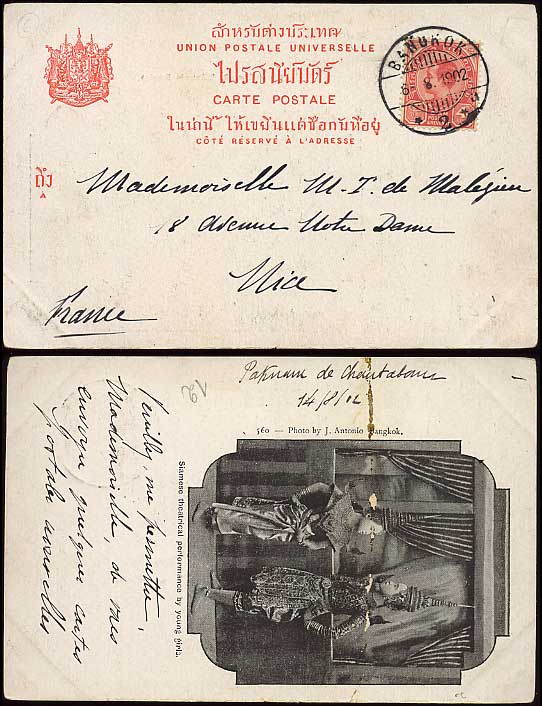 สำหรับต่างประเทศ
UNION POSTALE UNIVERSELLE
ไปรสนียบัตร์
CARTE POSTALE
ในน่านี้ ให้เขียนแต่ชื่อกับที่อยู่
CÔTÉ RÉSERVÉ À L'ADRESSE
BANGKOK
8. 1902
2
ถึง
A
Mademoiselle M. T. de Malézieu
18 Avenue Notre Dame
Nice
France
Paknam de Chantaboun
14/8/02
560 — Photo by J. Antonio Bangkok.
12
Veuillez me permettre,
Mademoiselle, de vous
envoyer quelques cartes
postales
Siamese theatrical performance by young girls.